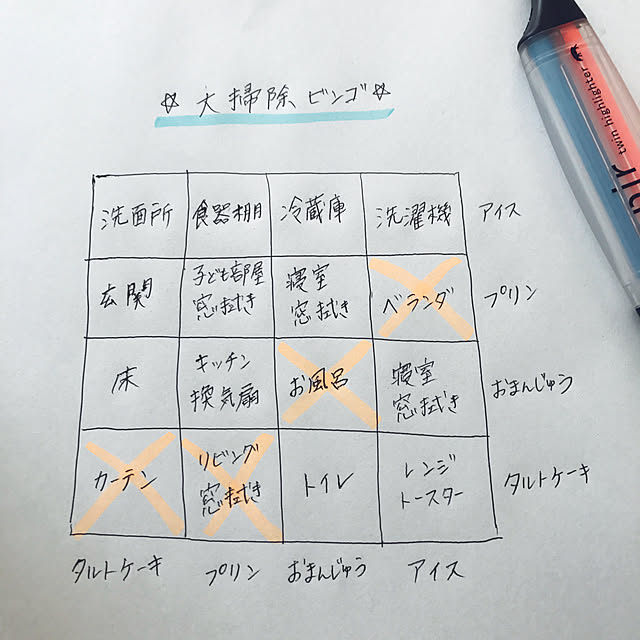 ☆ 大掃除ビンゴ☆
洗面所 食器棚 冷蔵庫 洗濯機 アイス
玄関 子ども部屋 窓拭き 寝室 窓拭き ベランダ プリン
床 キッチン 換気扇 お風呂 寝室 窓拭き おまんじゅう
カーテン リビング 窓拭き トイレ レンジ トースター タルトケーキ
タルトケーキ プリン おまんじゅう アイス
twin highlighter